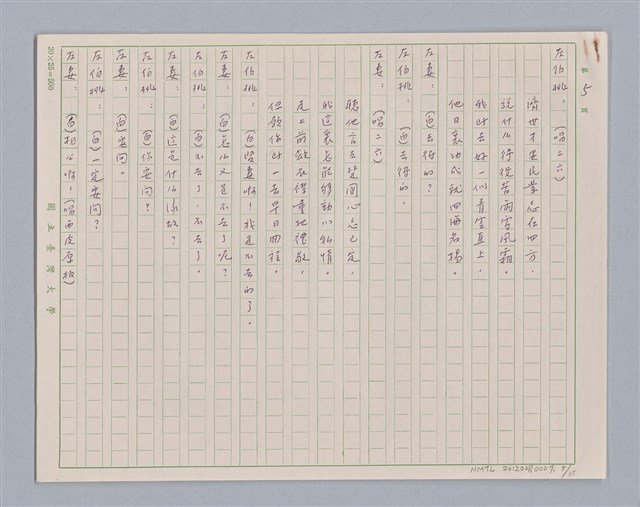 第5頁
左伯桃：(唱二六)
濟世才立民業志在四方。
說什么行役苦雨雪風霜。
我此去好一似青雲直上，
他日裏功成就四海名揚。
左妻：(白)去得的？
左伯桃：(白)去得的。
左妻：(唱二六)
聽他言去楚國心意已定，
我這裏怎能夠動以私情。
走上前斂衣襟重施禮敬，
但願你此一去早日回程。
左伯桃：(白)賢妻啊！我是不去的了。
左妻：(白)怎么又是不去了呢？
左伯桃：(白)不去了，不去了。
左妻：(白)這是什么緣故？
左伯桃：(白)你要問？
左妻：(白)要問。
左伯桃：(白)一定要問？
左妻：(白)相公啊！(唱西皮原板)
20×25=500
國立臺灣大學
NMTL 20120280009, 5/25